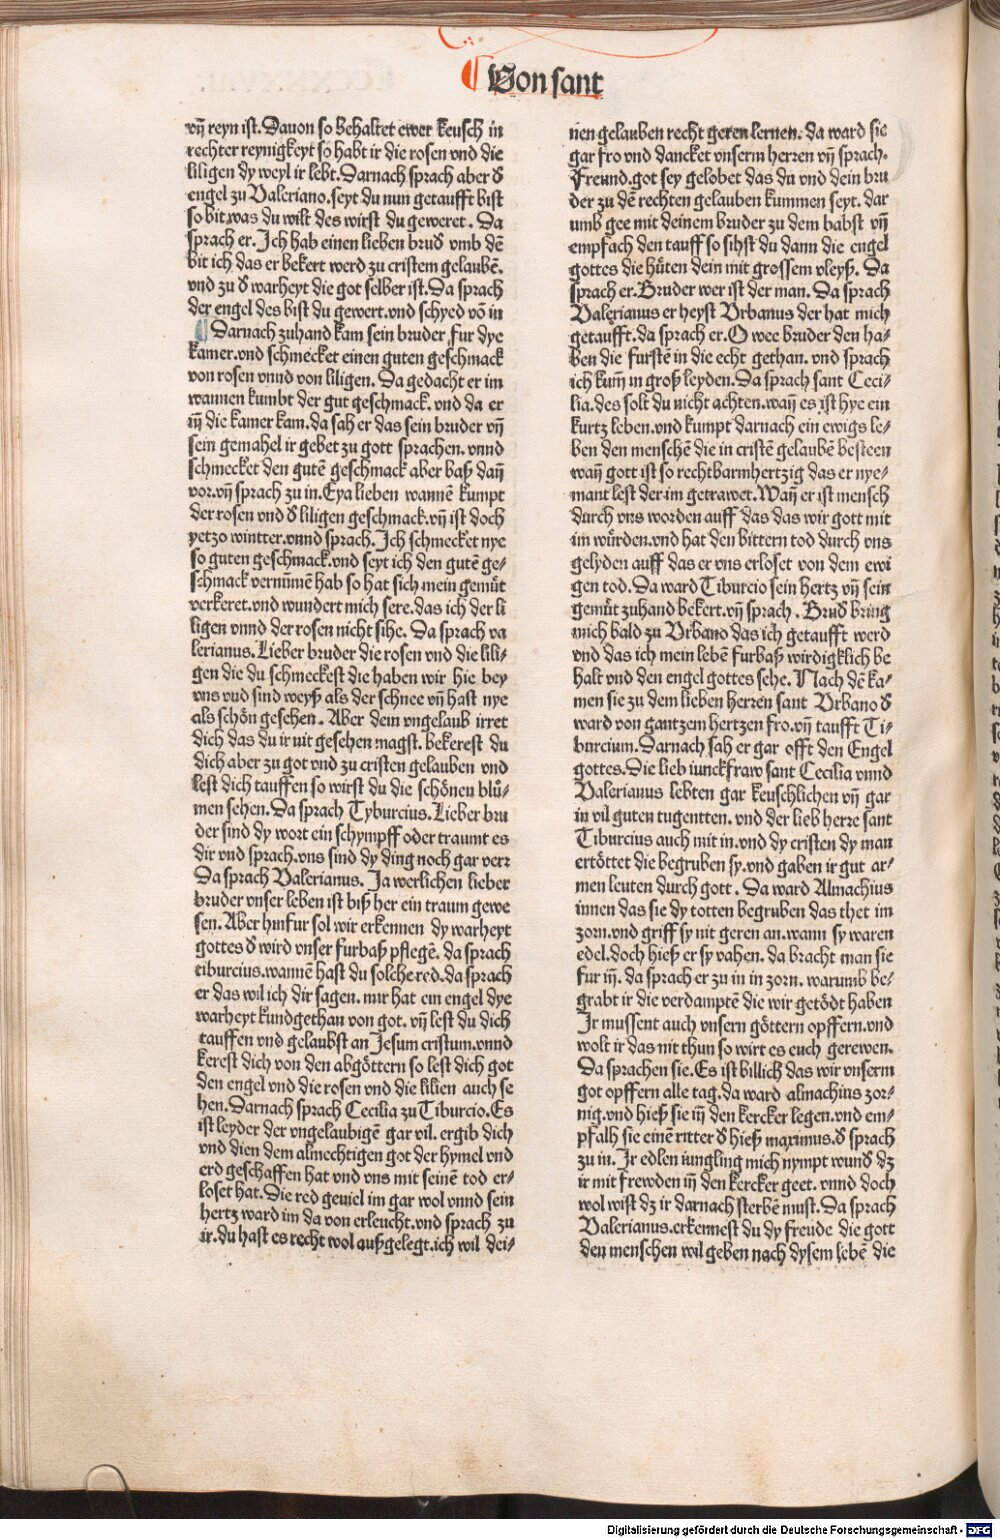 Von sant
vñ reyn ist. Dauon so behaltet ewer keusch in
rechter reynigkeyt so habt ir die rosen vnd die
liligen dy weyl ir lebt. Darnach sprach aber d̕
engel zu Valeriano. seyt du nun getaufft bist
so bit was du wilt des wirst du geweret. Da
sprach er. Ich hab einen lieben brud̕ vmb dē
bit ich das er bekert werd zu cristem gelaubē.
vnd zu d̕ warheyt die got selber ist. Da sprach
der engel des bist du gewert. vnd schyed vō in
Darnach zuhand kam sein bruder fur dye
kamer. vnd schmecket einen guten geschmack
von rosen vnnd von liligen. Da gedacht er im
wannen kumbt der gut geschmack. vnd da er
iñ die kamer kam. da sah er das sein bruder vñ
sein gemahel ir gebet zu gott sprachen. vnnd
schmecket den gutē geschmack aber baß dañ
vor. vñ sprach zu in. Eya lieben wannē kumpt
der rosen vnd d̕ liligen geschmack. vñ ist doch
yetzo wintter. vnnd sprach. Ich schmecket nye
so guten geschmack. vnd seyt ich den gutē ge⸗
schmack vernūmē hab so hat sich mein gemüt
verkeret. vnd wundert mich sere. das ich der li
ligen vnnd der rosen nicht sihe. Da sprach va
lerianus. Lieber bruder die rosen vnd die lili⸗
gen die du schmeckest die haben wir hie bey
vns vnd sind weyß als der schnee vñ hast nye
als schön gesehen. Aber dein vngelaub irret
dich das du ir nit gesehen magst. bekerest du
dich aber zu got vnd zu cristen gelauben vnd
lest dich tauffen so wirst du die schönen blů⸗
men sehen. Da sprach Tyburcius. Lieber bru
der sind dy wort ein schympff oder traumt es
dir vnd sprach. vns sind dy ding noch gar verr
Da sprach Valerianus. Ja werlichen lieber
bruder vnser leben ist biß her ein traum gewe
sen. Aber hinfur sol wir erkennen dy warheyt
gottes d̕ wird vnser furbaß pflegē. da sprach
tiburcius. wannē hast du solche red. da sprach
er das wil ich dir sagen. mir hat ein engel dye
warheyt kundgethan von got. vñ lest du dich
tauffen vnd gelaubst an Jesum cristum. vnnd
kerest dich von den abgöttern so lest dich got
den engel vnd die rosen vnd die lilien auch se
hen. Darnach sprach Cecilia zu Tiburcio. Es
ist leyder der vngelaubigē gar vil. ergib dich
vnd dien dem almechtigen got der hymel vnd
erd geschaffen hat vnd vns mit seinē tod er⸗
loset hat. Die red geuiel im gar wol vnnd sein
hertz ward im da von erleucht. vnd sprach zu
ir. du hast es recht wol außgelegt. ich wil dei⸗
nen gelauben recht geren lernen. da ward sie
gar fro vnd dancket vnserm herren vñ sprach.
Freund. got sey gelobet das du vnd dein bru
der zu dē rechten gelauben kummen seyt. dar
umb gee mit deinem bruder zu dem babst vñ
empfach den tauff so sihst du dann die engel
gottes die hüten dein mit grossem vleyß. Da
sprach er. Bruder wer ist der man. Da sprach
Valerianus er heyst Vrbanus der hat mich
getaufft. da sprach er. O wee bruder den ha⸗
ben die furstē in die echt gethan. vnd sprach
ich kum̄ in groß leyden. Da sprach sant Ceci⸗
lia. des solt du nicht achten. wañ es ist hye ein
kurtz leben. vnd kumpt darnach ein ewigs le⸗
ben den menschē die in cristē gelaubē besteen
wañ gott ist so rechtbarmhertzig das er nye⸗
mant lest der im getrawet. Wañ er ist mensch
durch vns worden auff das das wir gott mit
im würden. vnd hat den bittern tod durch vns
gelyden auff das er vns erloset von dem ewi
gen tod. Da ward Tiburcio sein hertz vñ sein
gemüt zuhand bekert. vñ sprach. Brud̕ bring
mich bald zu Vrbano das ich getaufft werd
vnd das ich mein lebē furbaß wirdigklich be
halt vnd den engel gottes sehe. Nach dē ka⸗
men sie zu dem lieben herren sant Vrbano d̕
ward von gantzem hertzen fro. vñ taufft Ti⸗
burcium. Darnach sah er gar offt den Engel
gottes. Die lieb iunckfraw sant Cecilia vnnd
Valerianus lebten gar keuschlichen vñ gar
in vil guten tugentten. vnd der lieb herre sant
Tiburcius auch mit in. vnd dy cristen dy man
ertöttet die begruben sy. vnd gaben ir gut ar⸗
men leuten durch gott. Da ward Almachius
innen das sie dy totten begruben das thet im
zorn. vnd griff sy nit geren an. wann sy waren
edel. doch hieß er sy vahen. da bracht man sie
fur iñ. da sprach er zu in in zorn. warumb be⸗
grabt ir die verdamptē die wir getödt haben
Ir mussent auch vnsern göttern opffern. vnd
wolt ir das nit thun so wirt es euch gerewen.
Da sprachen sie. Es ist billich das wir vnserm
got opffern alle tag. da ward almachius zor⸗
nig. vnd hieß sie iñ den kercker legen. vnd em⸗
pfalh sie einē ritter d̕ hieß maximus. d̕ sprach
zu in. Ir edlen iungling mich nympt wund̕ dz
ir mit frewden iñ den kercker geet. vnnd doch
wol wist dz ir darnach sterbē must. Da sprach
Valerianus. erkennest du dy freude die gott
den menschen wil geben nach dysem lebē die
Digitalisierung gefördert durch die Deutsche Forschungsgemeinschaft - DFG